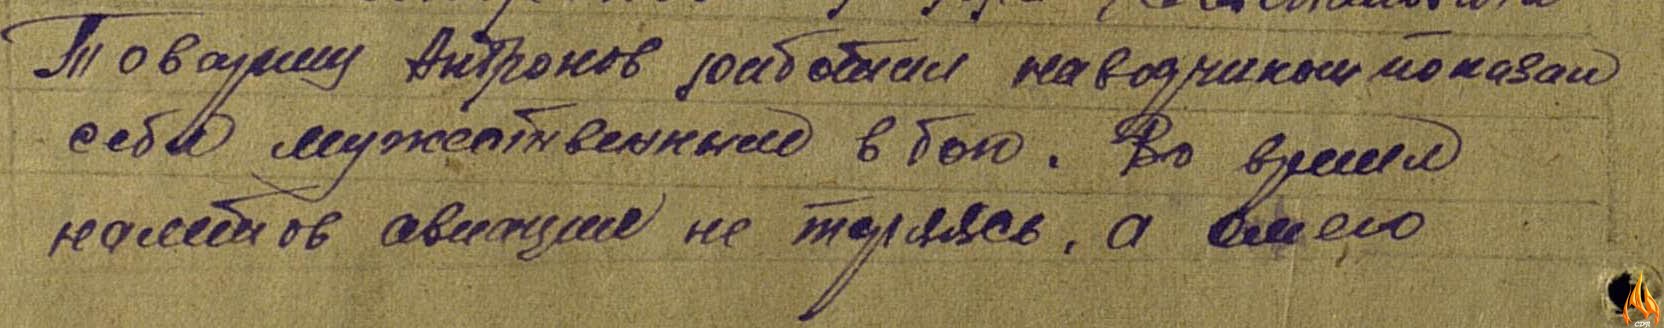 Товарищ Антронов работая наводчиком показал
себя мужественным в бою. Во время
налётов авиации не терялся, а смело